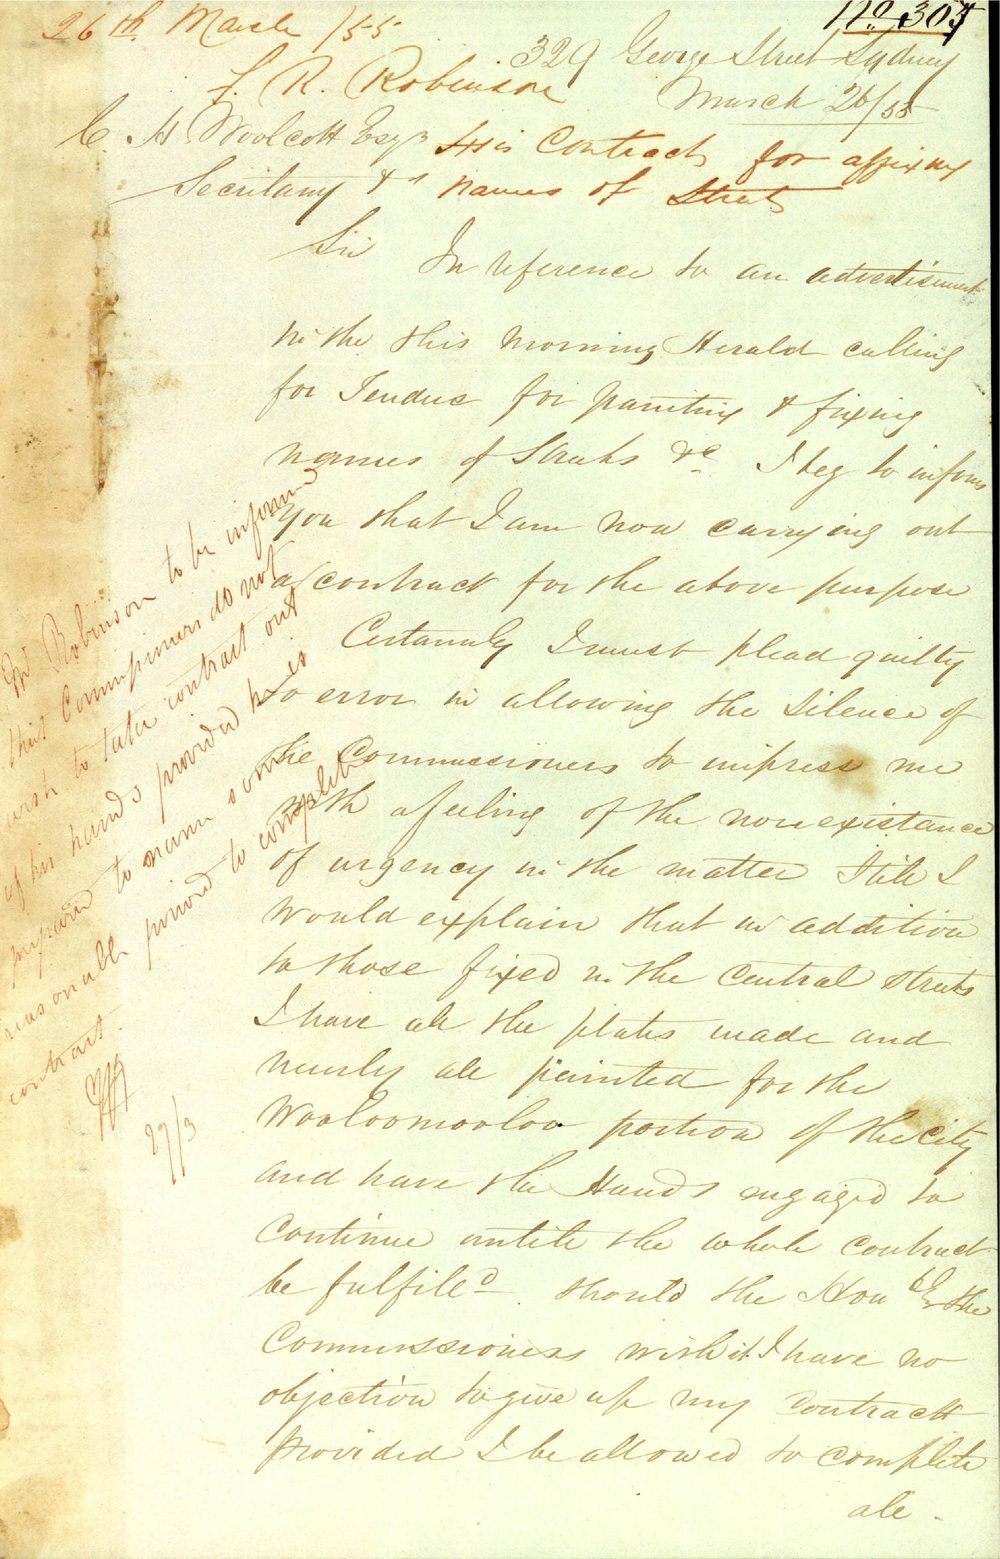 26th March /55
No 305
329 George Street Sydney
F. R. Robinson
March 26/55
C. H Woolcott Esqr
His Contract for affixing
names of Streets
Secretary &c
Sir In reference to an advertisement
in the this morning Herald calling
for Tendus for painting & fixing
names of Streets &c. I beg to inform
you that I am now carrying out
a contract for the above purpose
Certainly I must plead guilty
to error in allowing the Silence of
the Commissioners to impress me
with a feeling of the non existance
of urgency in the matter Still I
would explain that in addition
to those fixed in the Central Streets
I have all the plates made and
nearly all painted for the
Wooloomooloo portion of the City
and have the Hands engaged to
Continue untill the whole contract
be fulfiled should the Hon the
Commissioners wish it I have no
objection to give up my Contract
provided I be allowed to complete
all -
Mr Robinson to be informed
that Commissioners do not
wish to take contract out
of his hands provided he is
prepared to name some
reasonable period to complete
contract.
27/3